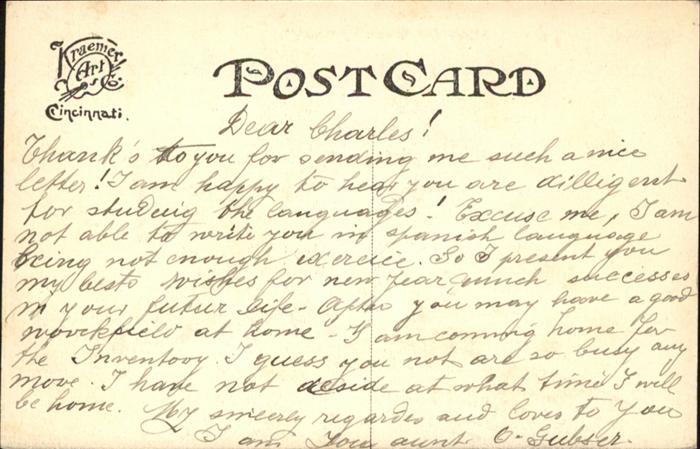 Kraemer
Art
Co.
Cincinnati.
POST CARD
Dear Charles!
Thank's to you for sending me such a nice
letter! I am happy to hear you are dilligent
for studuig the languages! Excuse me, I am
not able to write you in spanish language
being not enough exercice. So I present you
my bests wishes for new Year much successes
in your futur life - After you may have a good
workfield at home - I am comming home for
the Inventory. I guess you not are so busy any
move. I have not deside at what time I will
be home. My sincerly regardes and loves to you
I am your aunt O. Gubser.